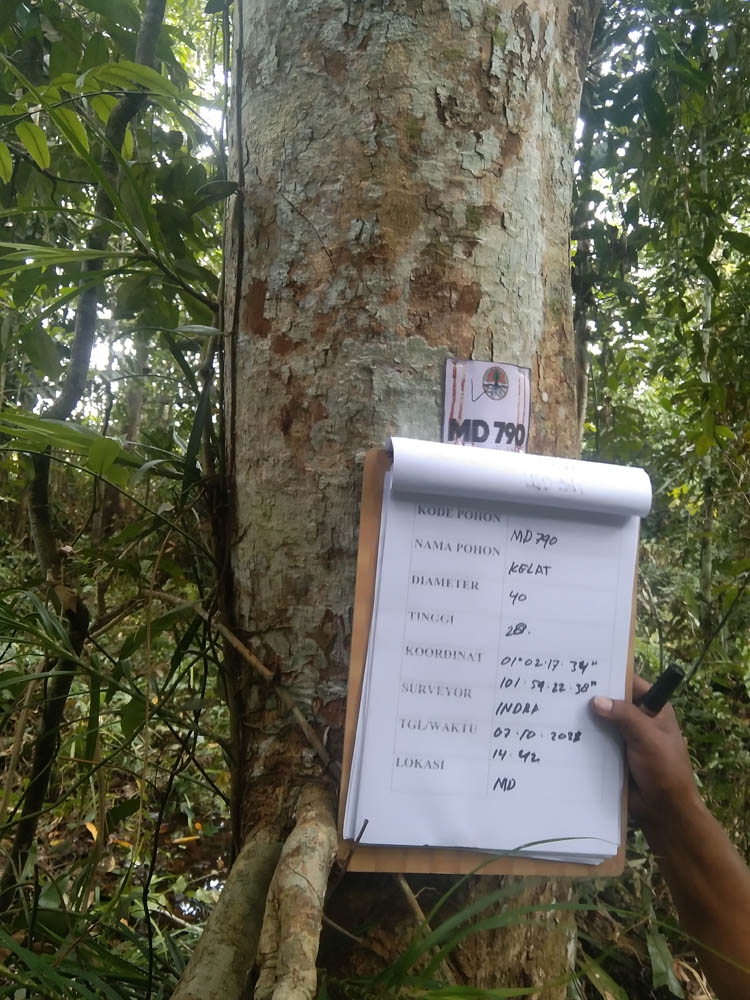 MD 790
KODE POHON MD790
NAMA POHON KELAT
DIAMETER 40
TINGGI 28.
KOORDINAT 01°02'17.34"
101.59.22.38"
SURVEYOR INDRA
TGL/WAKTU 07.10.2021
14.42
LOKASI MD